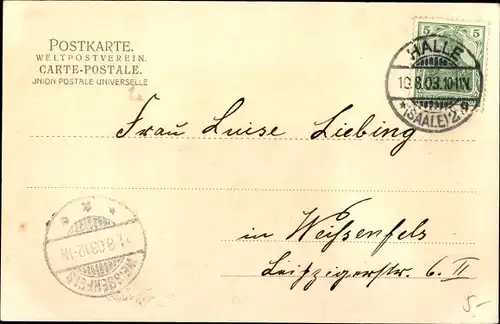 POSTKARTE.
WELTPOSTVEREIN.
CARTE-POSTALE.
UNION POSTALE UNIVERSELLE
5 5
HALLE
10.8.03.10-11V.
*(SAALE)*2.g
Frau Luise Liebing
in Weissenfels
Leipzigerstr. 6. II
WEISSENFELS
11.8.03.12-1N.
5.-